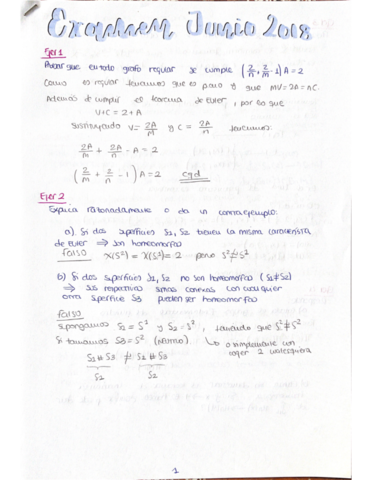 Examen Junio 2018
Ejer 1
Probar que en todo grafo regular se cumple (2/n + 2/m - 1) A = 2
Como es regular tenemos que es plano y que mV = 2A = nC.
Además se cumple el teorema de Euler, por lo que
V + C = 2 + A
Sustituyendo V = 2A/m y C = 2A/n tenemos:
2A/m + 2A/n - A = 2
(2/m + 2/n - 1) A = 2 cqd
Ejer 2
Explica razonadamente o da un contraejemplo:
a) Si dos superficies S1, S2 tienen la misma característica
de Euler ⟹ son homeomorfas
Falso χ(S²) = χ(S²) = 2 pero S² ≠ S²
b) Si dos superficies S1, S2 no son homeomorfas (S1 ≠ S2)
⟹ sus respectivas sumas conexas con cualquier
otra superficie S3 pueden ser homeomorfas
Falso
Supongamos S1 = S² y S2 = S², tomando que S² ≠ S²
Si tomamos S3 = S² (neutro) ↳ o simplemente con
S1 # S3 ≠ S2 # S3 coger 2 cualesquiera
S1 S2
1